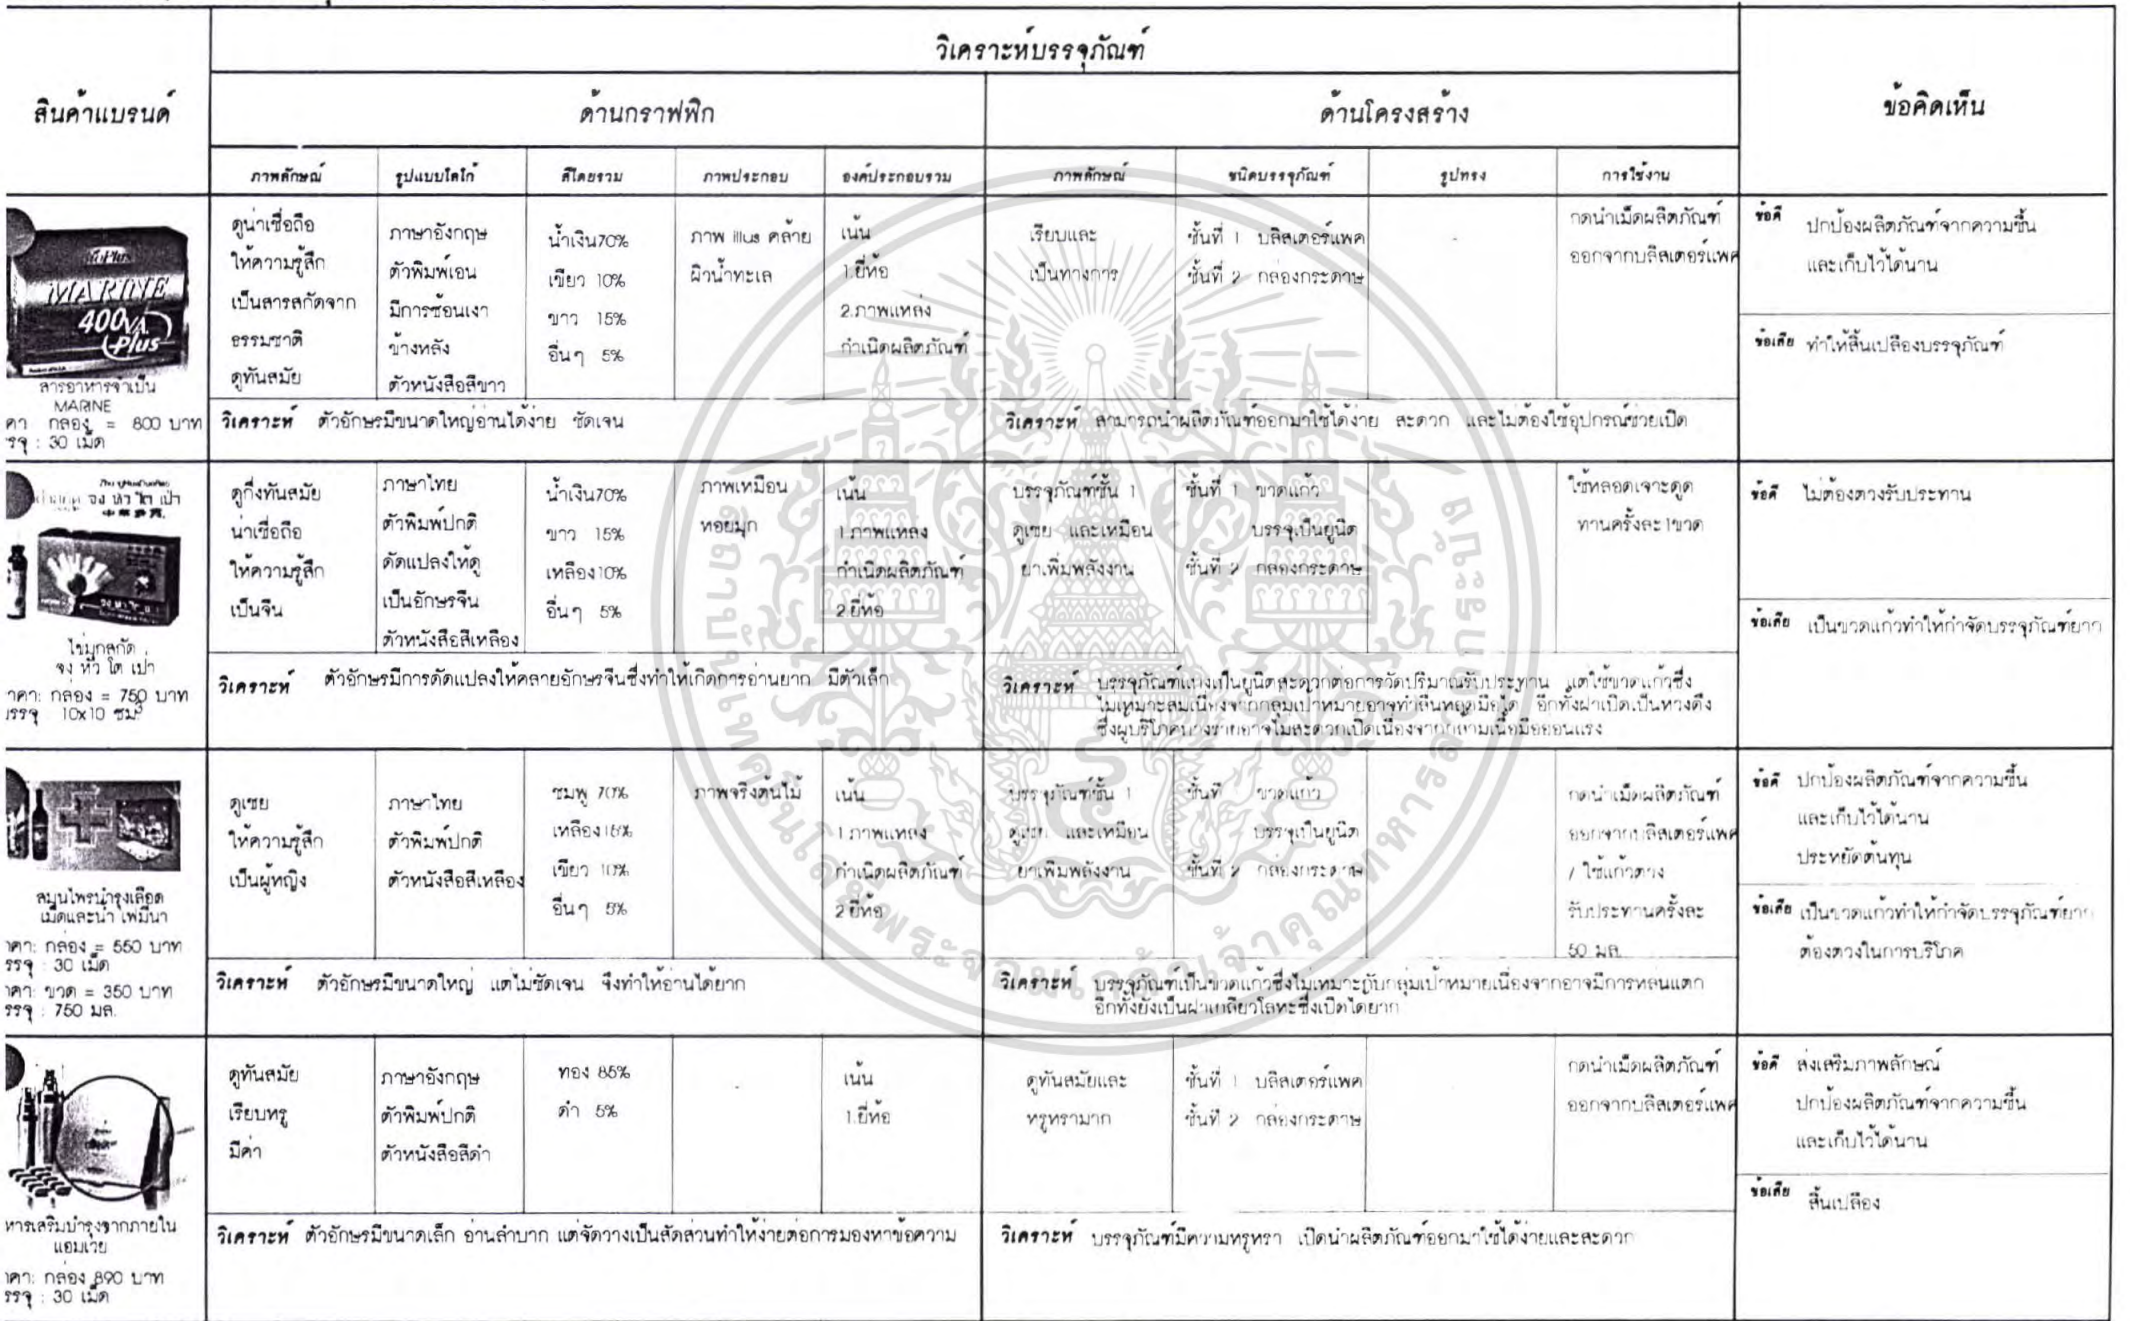 วิเคราะห์บรรจุภัณฑ์
สินค้าแบรนด์
ด้านกราฟฟิก
ด้านโครงสร้าง
ข้อคิดเห็น
ภาพลักษณ์
รูปแบบโลโก้
สีโดยรวม
ภาพประกอบ
องค์ประกอบรวม
ภาพลักษณ์
ชนิดบรรจุภัณฑ์
รูปทรง
การใช้งาน
MARINE
400
Plus
สารอาหารจำเป็น
MARINE
คา กล่อง = 800 บาท
รจุ : 30 เม็ด
ดูน่าเชื่อถือ
ให้ความรู้สึก
เป็นสารสกัดจาก
ธรรมชาติ
ดูทันสมัย
ภาษาอังกฤษ
ตัวพิมพ์เอน
มีการซ้อนเงา
ข้างหลัง
ตัวหนังสือสีขาว
น้ำเงิน70%
เขียว 10%
ขาว 15%
อื่นๆ 5%
ภาพ illus คล้าย
ผิวน้ำทะเล
เน้น
1.ยี่ห้อ
2.ภาพแหล่ง
กำเนิดผลิตภัณฑ์
เรียบและ
เป็นทางการ
ชั้นที่ 1 บลิสเตอร์แพค
ชั้นที่ 2 กล่องกระดาษ
-
กดนำเม็ดผลิตภัณฑ์
ออกจากบลิสเตอร์แพค
ข้อดี ปกป้องผลิตภัณฑ์จากความชื้น
และเก็บไว้ได้นาน
ข้อเสีย ทำให้สิ้นเปลืองบรรจุภัณฑ์
วิเคราะห์ ตัวอักษรมีขนาดใหญ่อ่านได้ง่าย ชัดเจน
วิเคราะห์ สามารถนำผลิตภัณฑ์ออกมาใช้ได้ง่าย สะดวก และไม่ต้องใช้อุปกรณ์ช่วยเปิด
จง หัว โต เป่า
ไข่มุกสกัด
จง หัว โต เป่า
าคา: กล่อง = 750 บาท
รรจุ : 10x10 ซม³
ดูกึ่งทันสมัย
น่าเชื่อถือ
ให้ความรู้สึก
เป็นจีน
ภาษาไทย
ตัวพิมพ์ปกติ
ดัดแปลงให้ดู
เป็นอักษรจีน
ตัวหนังสือสีเหลือง
น้ำเงิน70%
ขาว 15%
เหลือง10%
อื่นๆ 5%
ภาพเหมือน
หอยมุก
เน้น
1.ภาพแหล่ง
กำเนิดผลิตภัณฑ์
2.ยี่ห้อ
บรรจุภัณฑ์ชั้น 1
ดูเชย และเหมือน
ยาเพิ่มพลังงาน
ชั้นที่ 1 ขวดแก้ว
บรรจุเป็นยูนิต
ชั้นที่ 2 กล่องกระดาษ
ใช้หลอดเจาะดูด
ทานครั้งละ1ขวด
ข้อดี ไม่ต้องตวงรับประทาน
ข้อเสีย เป็นขวดแก้วทำให้กำจัดบรรจุภัณฑ์ยาก
วิเคราะห์ ตัวอักษรมีการดัดแปลงให้คล้ายอักษรจีนซึ่งทำให้เกิดการอ่านยาก มีตัวเล็ก
วิเคราะห์ บรรจุภัณฑ์แบ่งเป็นยูนิตสะดวกต่อการวัดปริมาณรับประทาน แต่ใช้ขวดแก้วซึ่ง
ไม่เหมาะสมเนื่องจากกลุ่มเป้าหมายอาจทำลื่นหลุดมือได้ อีกทั้งฝาเปิดเป็นห่วงดึง
ซึ่งผู้บริโภคบางรายอาจไม่สะดวกเปิดเนื่องจากกล้ามเนื้อมืออ่อนแรง
สมุนไพรบำรุงเลือด
เม็ดและน้ำ เพมีนา
าคา: กล่อง = 550 บาท
รรจุ : 30 เม็ด
าคา: ขวด = 350 บาท
รรจุ : 750 มล.
ดูเชย
ให้ความรู้สึก
เป็นผู้หญิง
ภาษาไทย
ตัวพิมพ์ปกติ
ตัวหนังสือสีเหลือง
ชมพู 70%
เหลือง15%
เขียว 10%
อื่นๆ 5%
ภาพจริงต้นไม้
เน้น
1.ภาพแหล่ง
กำเนิดผลิตภัณฑ์
2.ยี่ห้อ
บรรจุภัณฑ์ชั้น 1
ดูเชย และเหมือน
ยาเพิ่มพลังงาน
ชั้นที่ ขวดแก้ว
บรรจุเป็นยูนิต
ชั้นที่ 2 กล่องกระดาษ
กดนำเม็ดผลิตภัณฑ์
ออกจากบลิสเตอร์แพค
/ ใช้แก้วตวง
รับประทานครั้งละ
50 มล.
ข้อดี ปกป้องผลิตภัณฑ์จากความชื้น
และเก็บไว้ได้นาน
ประหยัดต้นทุน
ข้อเสีย เป็นขวดแก้วทำให้กำจัดบรรจุภัณฑ์ยาก
ต้องตวงในการบริโภค
วิเคราะห์ ตัวอักษรมีขนาดใหญ่ แต่ไม่ชัดเจน จึงทำให้อ่านได้ยาก
วิเคราะห์ บรรจุภัณฑ์เป็นขวดแก้วซึ่งไม่เหมาะกับกลุ่มเป้าหมายเนื่องจากอาจมีการหล่นแตก
อีกทั้งยังเป็นฝาเกลียวโลหะซึ่งเปิดได้ยาก
หารเสริมบำรุงจากภายใน
แอมเวย์
าคา: กล่อง 890 บาท
รรจุ : 30 เม็ด
ดูทันสมัย
เรียบหรู
มีค่า
ภาษาอังกฤษ
ตัวพิมพ์ปกติ
ตัวหนังสือสีดำ
ทอง 85%
ดำ 5%
-
เน้น
1.ยี่ห้อ
ดูทันสมัยและ
หรูหรามาก
ชั้นที่ 1 บลิสเตอร์แพค
ชั้นที่ 2 กล่องกระดาษ
กดนำเม็ดผลิตภัณฑ์
ออกจากบลิสเตอร์แพค
ข้อดี ส่งเสริมภาพลักษณ์
ปกป้องผลิตภัณฑ์จากความชื้น
และเก็บไว้ได้นาน
ข้อเสีย สิ้นเปลือง
วิเคราะห์ ตัวอักษรมีขนาดเล็ก อ่านลำบาก แต่จัดวางเป็นสัดส่วนทำให้ง่ายต่อการมองหาข้อความ
วิเคราะห์ บรรจุภัณฑ์มีความหรูหรา เปิดนำผลิตภัณฑ์ออกมาใช้ได้ง่ายและสะดวก
สถาบันเทคโนโลยีพระจอมเกล้าเจ้าคุณทหารลาดกระบัง